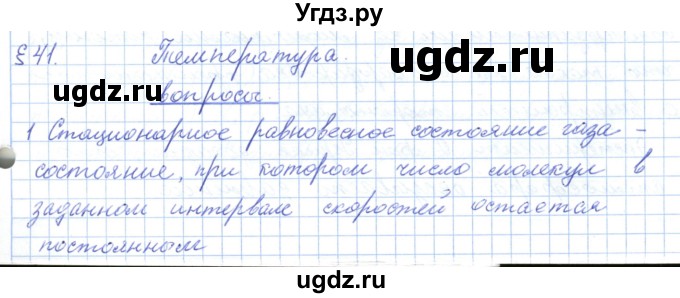 Угдз.ру
§ 41. Температура.
ugdz.ru
ugdz.ru
вопросы.
1 Стационарное равновесное состояние газа –
состояние, при котором число молекул в
заданном интервале скоростей остается
постоянным
ugdz.ru
ugdz.ru